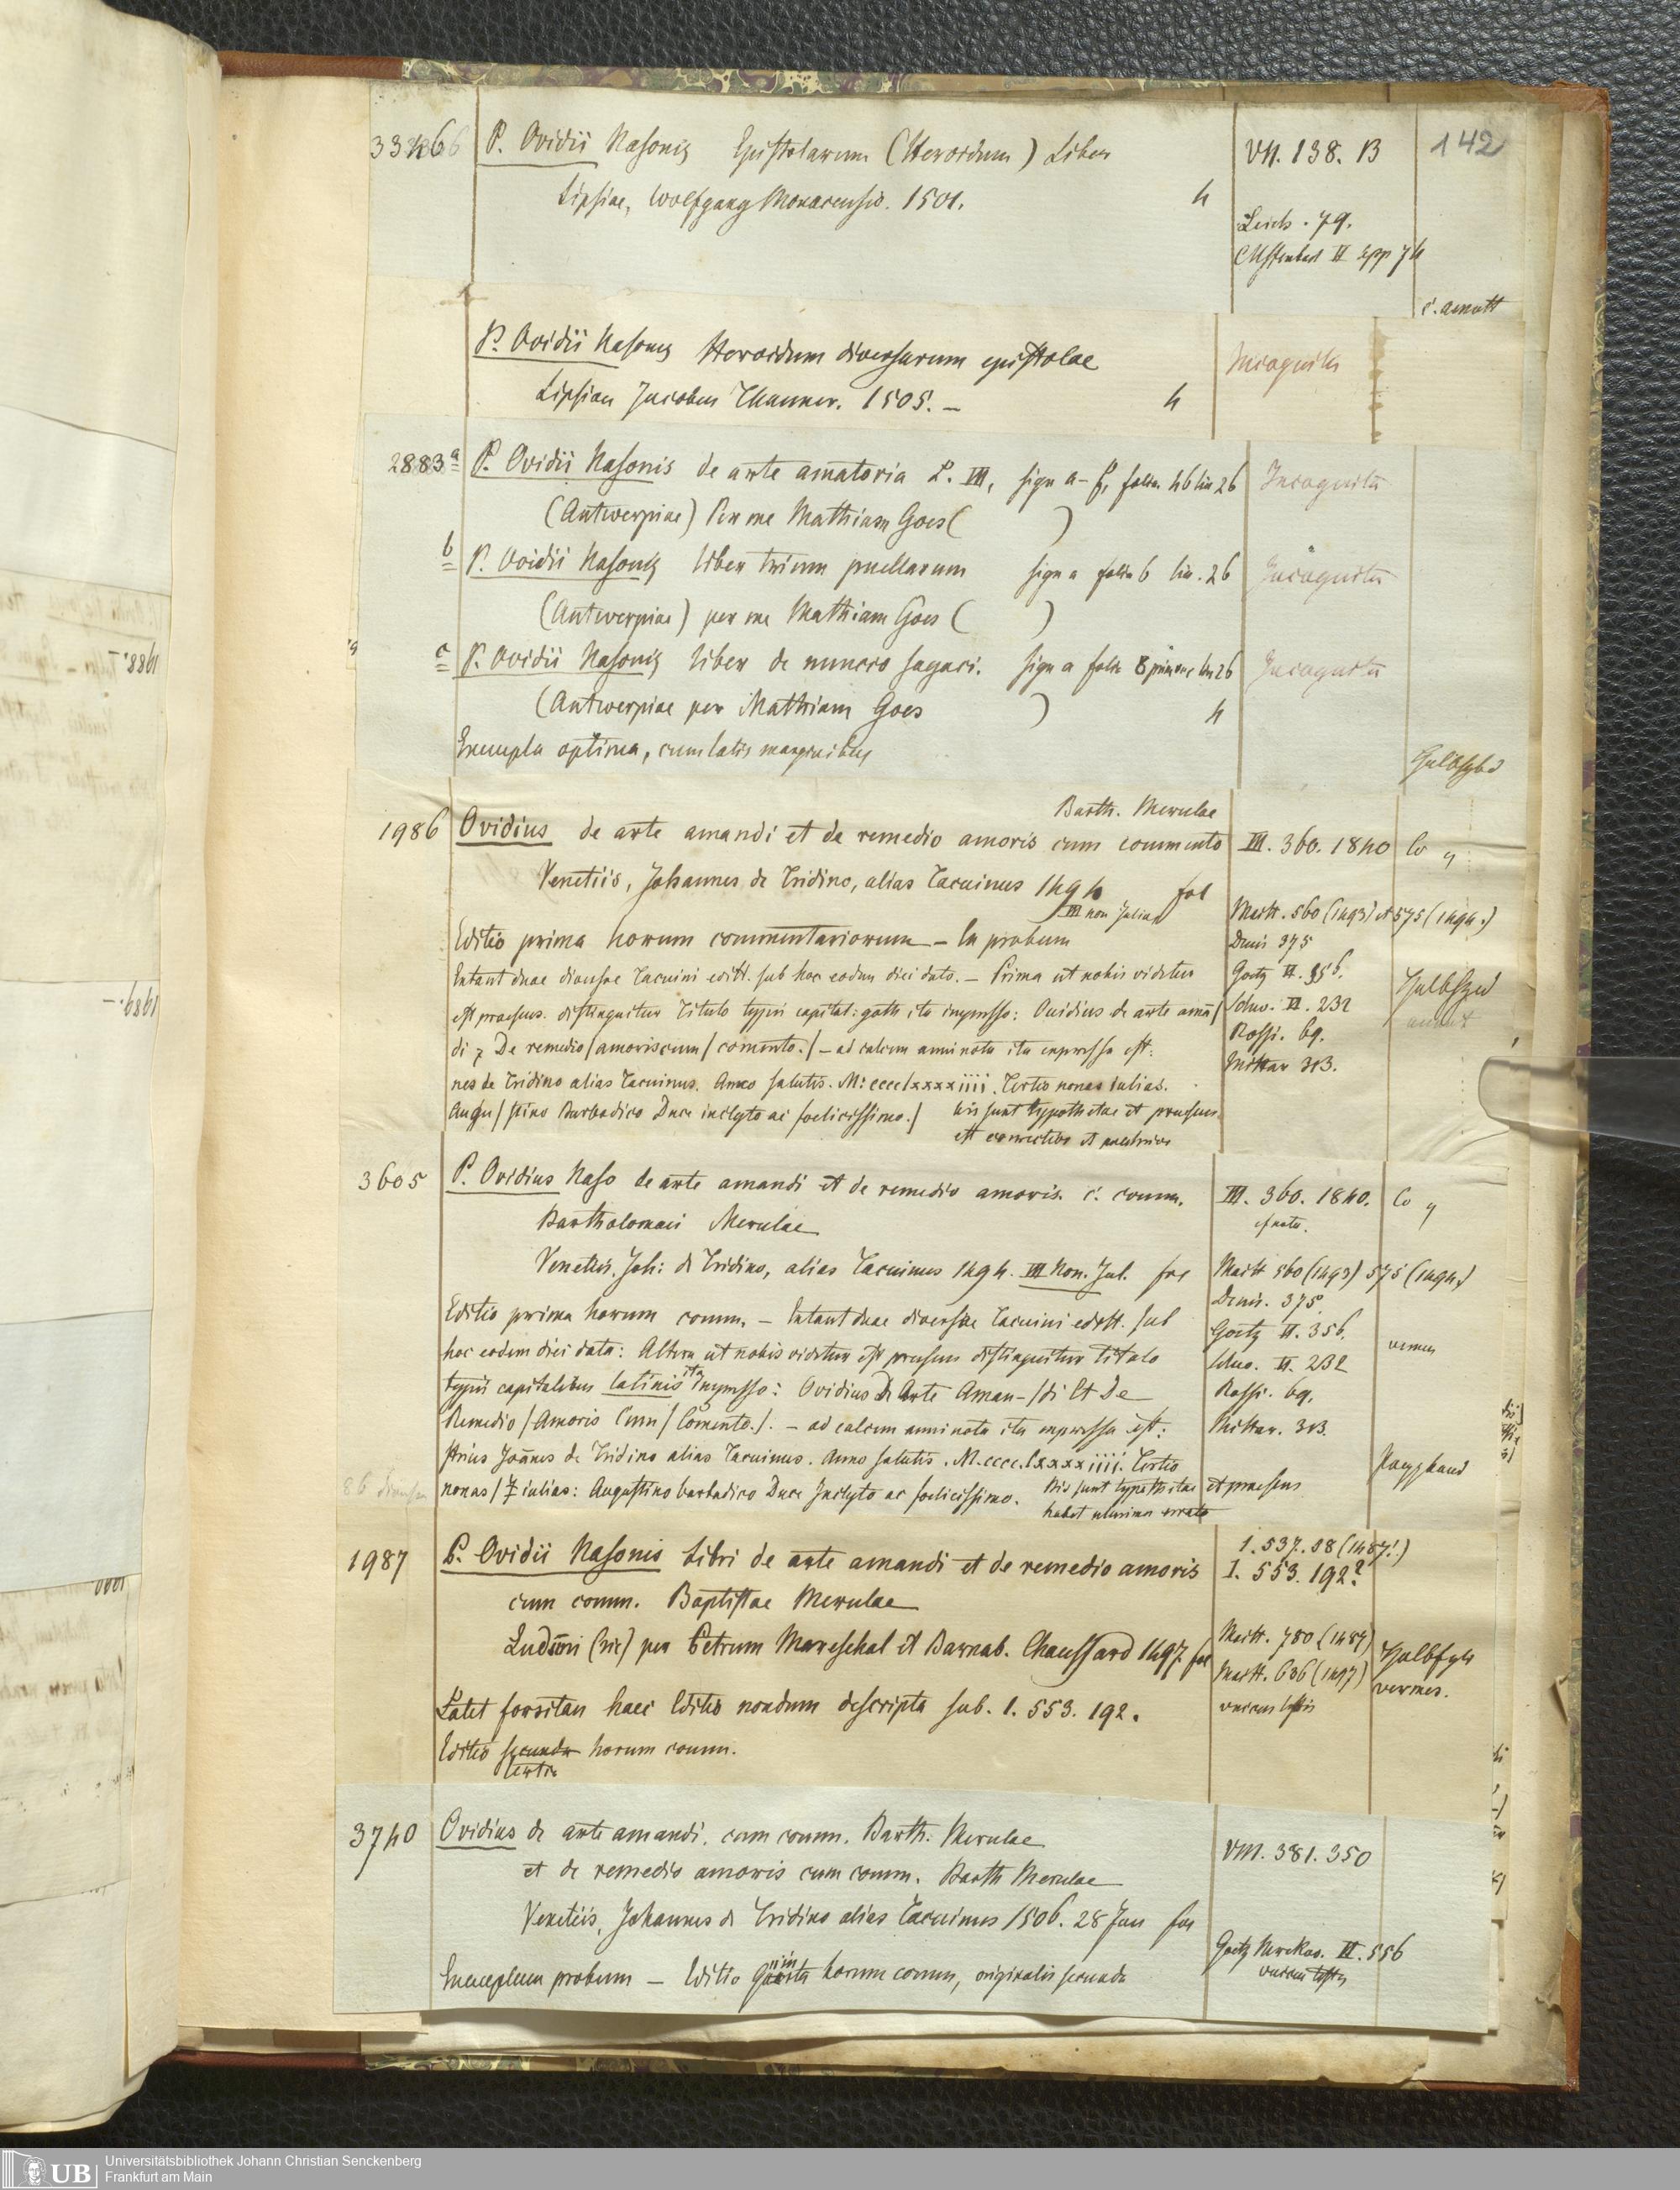 142
P. Ovidii Nasonis Epistolarum (Heroidum) Liber VII. 138. B
Lipsiae, Wolfgang Monacensis. 1501. 4
Leich. 79.
P. Ovidii Nasonis Heroidum diversarum epistolae Incognita
Lipsiae Jacobus Thanner. 1505. — 4
2883 a P. Ovidii Nasonis de arte amatoria L. III, sign a-f, folia 46 lin 26 Incognita
(Antwerpiae) Per me Mathiam Goes ( )
b P. Ovidii Nasonis liber trium puellarum sign a folia 6 lin. 26 Incognita
(Antwerpiae) per me Mathiam Goes ( )
c P. Ovidii Nasonis liber de nuncio sagaci. sign a folia 8 lin 26 Incognita
(Antwerpiae per Mathiam Goes ) 4
Exempla optima, cum latis marginibus
Barth. Merulae
1986 Ovidius de arte amandi et de remedio amoris cum commento III. 360. 1840 Co
Venetiis, Johannes de Tridino, alias Tacuinus 1494 fol
III non Julias
Maitt. 560 (1493) et 575 (1494.)
Editio prima horum commentariorum — In probum
Denis 375
Extant duae diversae Tacuini editt. sub hoc eodem diei dato. — Prima ut nobis videtur
Goetz II. 356.
est praesens. distinguitur Titulo typis capital: goth ita impresso: Ouidius de arte amā/
II. 232
Rossi. 69.
di ⁊ De remedio / amoris cum / comento./ — ad calcem anni nota ita expressa est:
313.
nes de Tridino alias Tacuinus. Anno salutis. M: cccclxxxxiiii. Tertio nonas iulias.
Augu/stino Barbadico Duce inclyto ac foelicissimo./ bis sunt typothetae et praesens
est correctior et
3605 P. Ovidius Naso de arte amandi et de remedio amoris. c. comm. III. 360. 1840. Co
Bartholomaei Merulae
Venetiis, Joh: de Tridino, alias Tacuinus 1494. III Non. Jul. fol
Maitt 560 (1493) 575 (1494)
Denis. 375.
Editio prima horum comm. — Extant duae diversae Tacuini editt. sub
Goetz II. 356.
hoc eodem diei dato: Altera ut nobis videtur est praesens distinguitur titulo
II. 232
typis capitalibus latinis ita impresso: Ovidius De Arte Aman-/di Et De
Rossi. 69.
Remedio / Amoris Cum / Comento./. — ad calcem anni nota ita expressa est:
313.
Joānes de Tridino alias Tacuinus. Anno salutis. M.cccc.lxxxxiiii. Tertio
nonas / iulias: Augustino barbadico Duce Inclyto ac foelicissimo. Bis sunt typothetae et praesens
habet plurima errata
Pappband
1987 P. Ovidii Nasonis Libri de arte amandi et de remedio amoris
I. 537. 58 (1487!)
I. 553. 192?
cum comm. Baptistae Merulae
Ludūni (sic) per Petrum Mareschal et Barnab. Chaussard 1497. fol
Maitt. 636 (1497)
vermes.
Latet forsitan haec Editio nondum descripta sub. I. 553. 192.
Editio secunda horum comm.
tertia
3740 Ovidius de arte amandi. cum comm. Barth. Merulae VIII. 381. 350
et de remedio amoris cum comm. Barth Merulae
Venetiis, Johannes de Tridino alias Tacuinus 1506. 28 Jan fol
Exemplum probum — Editio horum comm, originalis secunda
UB Universitätsbibliothek Johann Christian Senckenberg
Frankfurt am Main